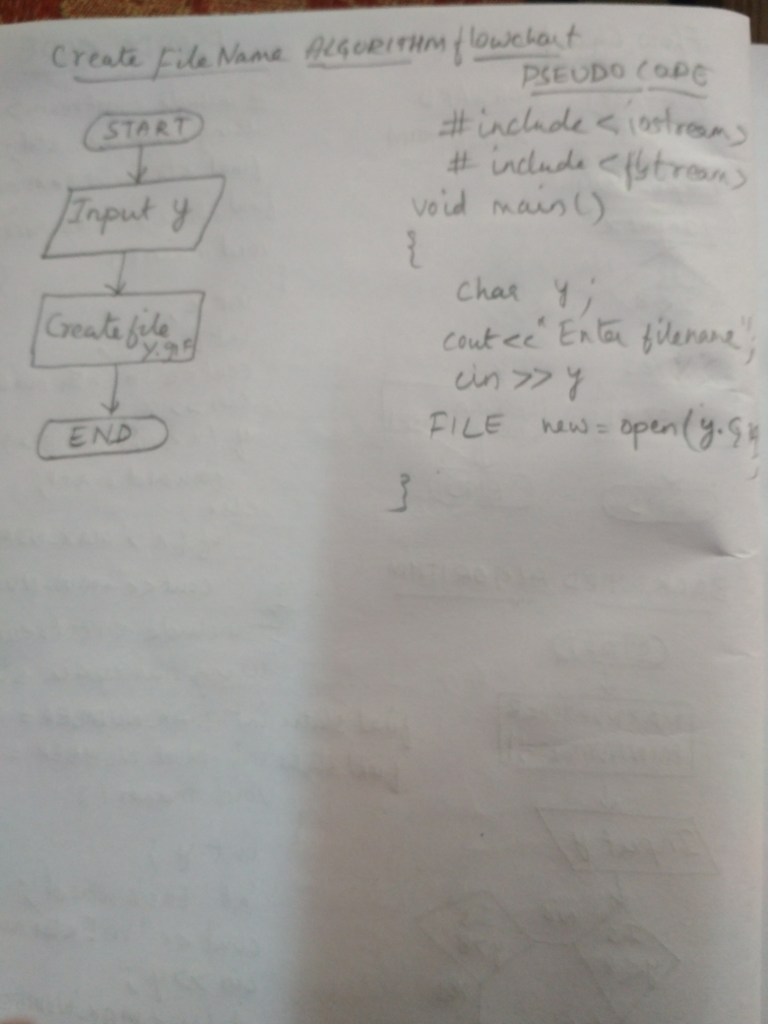 Create File Name ALGORITHM flowchart
PSEUDO CODE
START
Input y
Create file
END
#include <iostream>
# include <fstream>
void main()
{
char y;
cout<<"Enter filename";
cin >> y
FILE new = open(y.
}